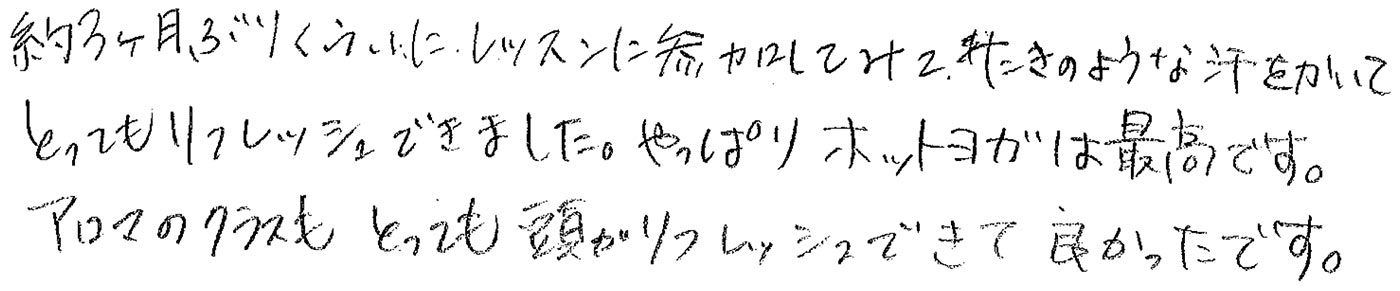 約3ヶ月ぶりくらいにレッスンに参加してみて、たきのような汗をかいて
とってもリフレッシュできました。やっぱりホットヨガは最高です。
アロマのクラスもとっても頭がリフレッシュできて良かったです。